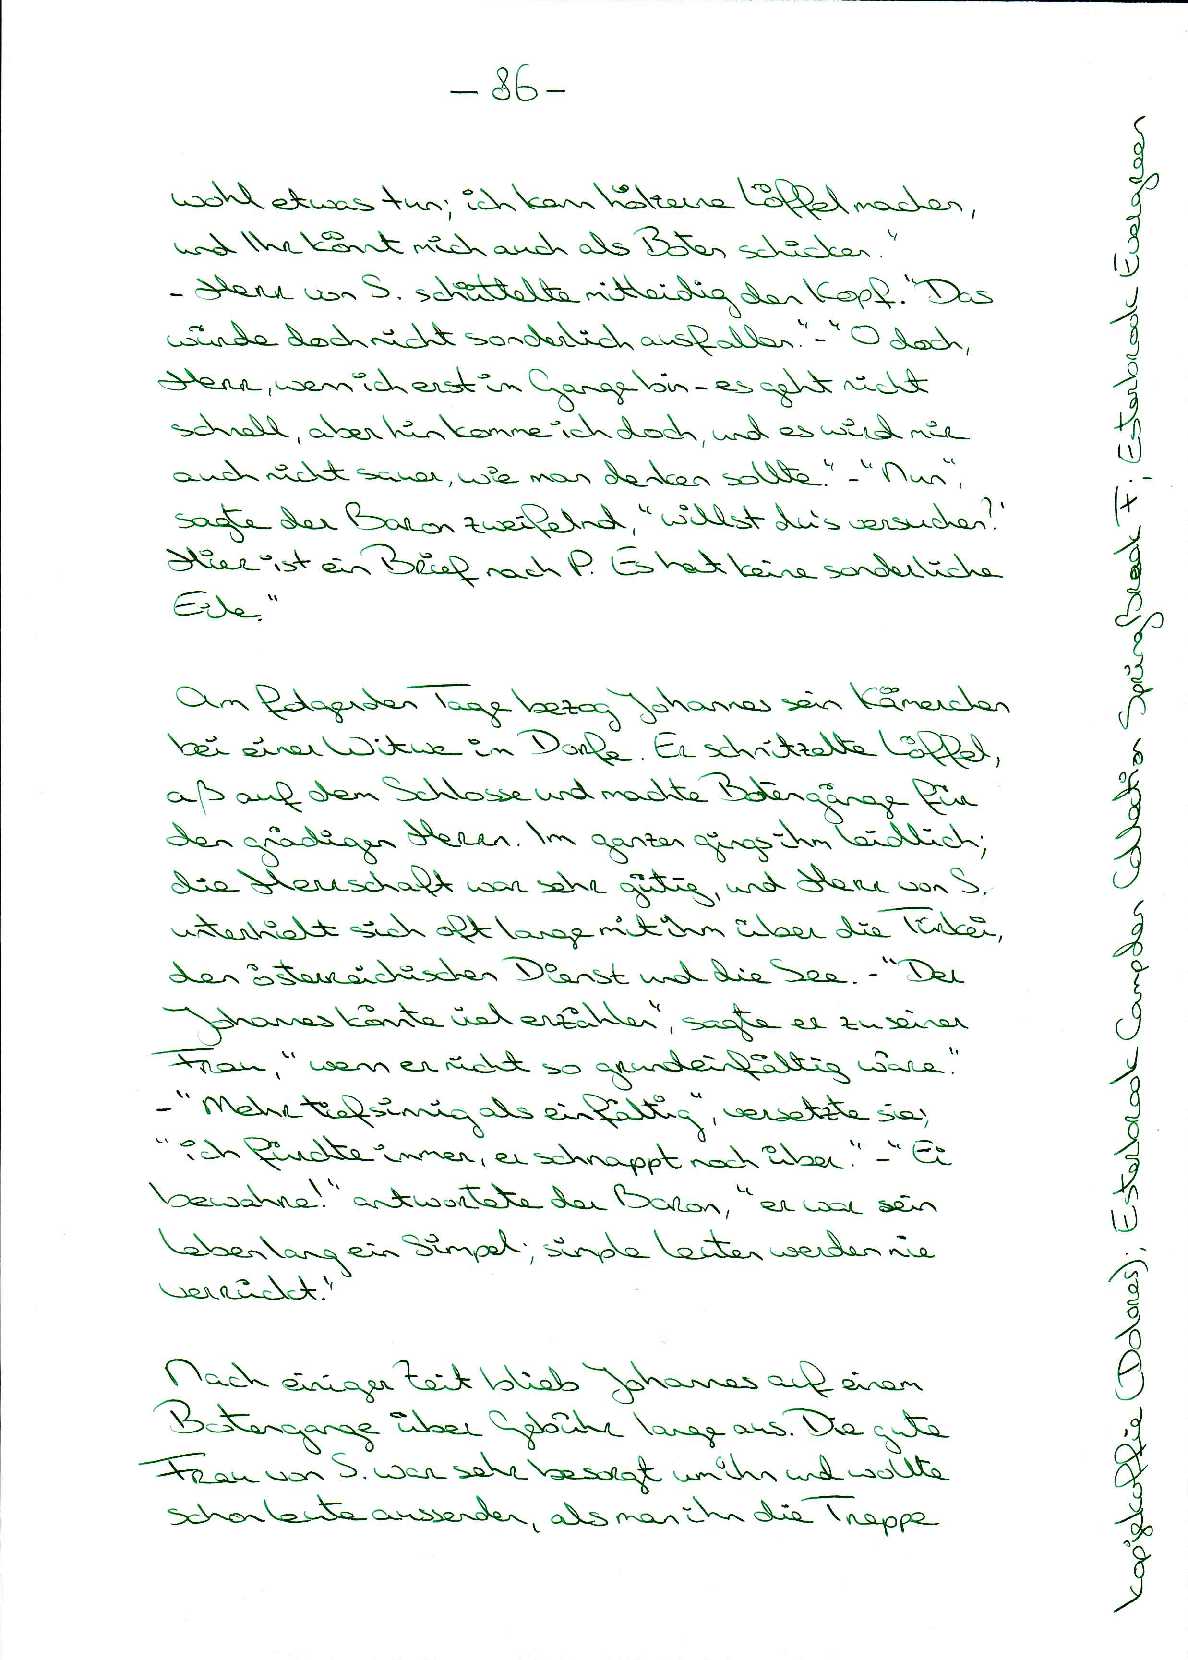 – 86 –
wohl etwas tun; ich kann hölzerne Löffel machen,
und Ihr könnt mich auch als Boten schicken."
– Herr von S. schüttelte mitleidig den Kopf. "Das
würde doch nicht sonderlich ausfallen." – "O doch,
Herr, wenn ich erst im Gange bin – es geht nicht
schnell, aber hin komme ich doch, und es wird mir
auch nicht sauer, wie man denken sollte." – "Nun",
sagte der Baron zweifelnd, "willst du's versuchen?
Hier ist ein Brief nach P. Es hat keine sonderliche
Eile."
Am folgenden Tage bezog Johannes sein Kämerchen
bei einer Witwe im Dorfe. Er schnitzelte Löffel,
aß auf dem Schlosse und machte Botengänge für
den gnädigen Herrn. Im ganzen gings ihm leidlich;
die Herrschaft war sehr gütig, und Herr von S.
unterhielt sich oft lange mit ihm über die Türkei,
den österreichischen Dienst und die See. – "Der
Johannes könnte viel erzählen", sagte er zu seiner
Frau, "wenn er nicht so grundeinfältig wäre."
– "Mehr tiefsinnig als einfältig", versetzte sie;
"ich fürchte immer, er schnappt noch über." – "Ei
bewahre!" antwortete der Baron, "er war sein
Leben lang ein Simpel; simple Leuten werden nie
verrückt."
Nach einiger Zeit blieb Johannes auf einem
Botengange über Gebühr lange aus. Die gute
Frau von S. war sehr besorgt um ihn und wollte
schon Leute aussenden, als man ihn die Treppe
Kopigkoffie (Dolores); Esterbrook Camden Collection Spring Break F; Esterbrook Evergreen